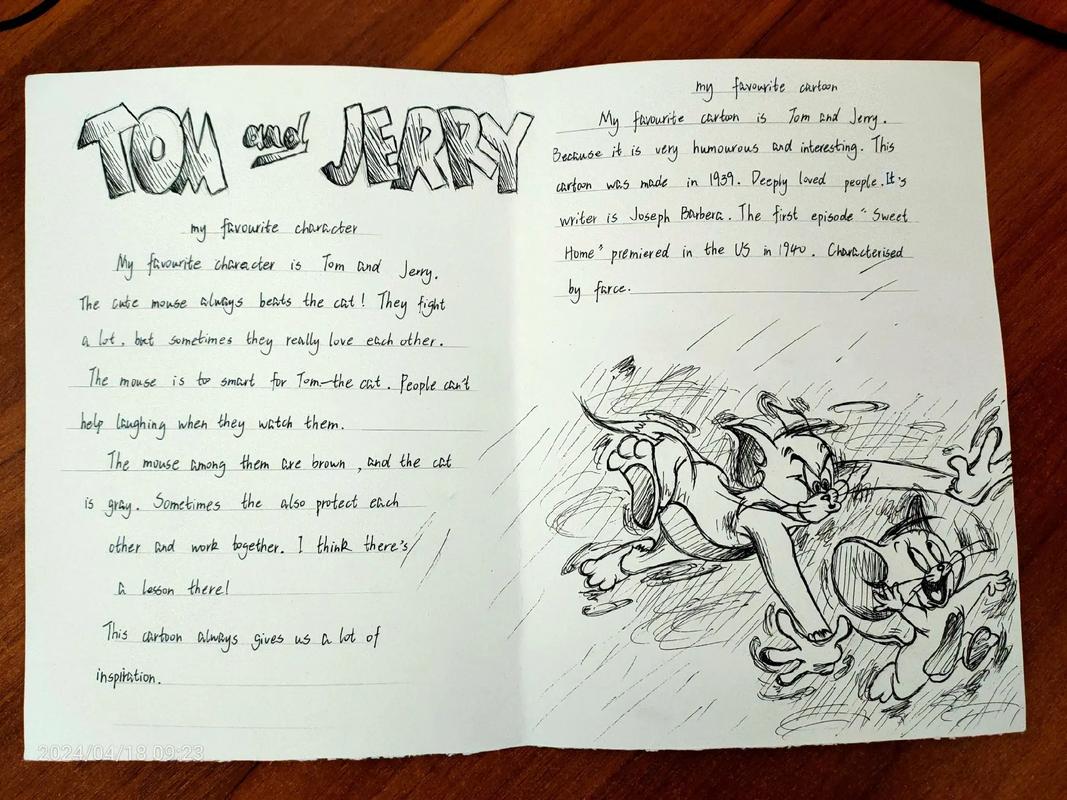 TOM and JERRY
my favourite character
My favourite character is Tom and Jerry.
The cute mouse always beats the cat! They fight
a lot, but sometimes they really love each other.
The mouse is to smart for Tom—the cat. People can't
help laughing when they watch them.
The mouse among them are brown, and the cat
is gray. Sometimes the also protect each
other and work together. I think there's
a lesson there!
This cartoon always gives us a lot of
inspiration.
my favourite cartoon
My favourite cartoon is Tom and Jerry.
Because it is very humourous and interesting. This
cartoon was made in 1939. Deeply loved people. It's
writer is Joseph Barbera. The first episode "Sweet
Home" premiered in the US in 1940. Characterised
by farce.
2024/04/18 09:23